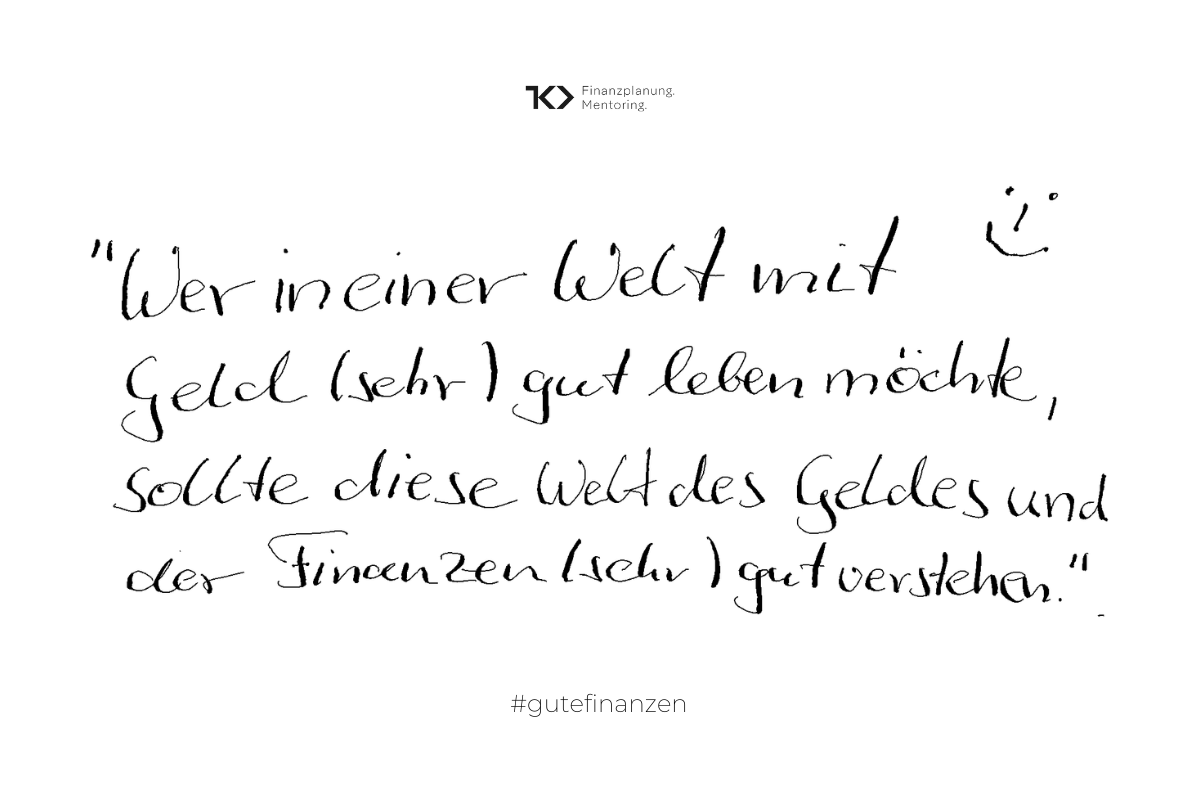 TKD Finanzplanung.
Mentoring.
"Wer in einer Welt mit
Geld (sehr) gut leben möchte,
sollte diese Welt des Geldes und
der Finanzen (sehr) gut verstehen."
#gutefinanzen